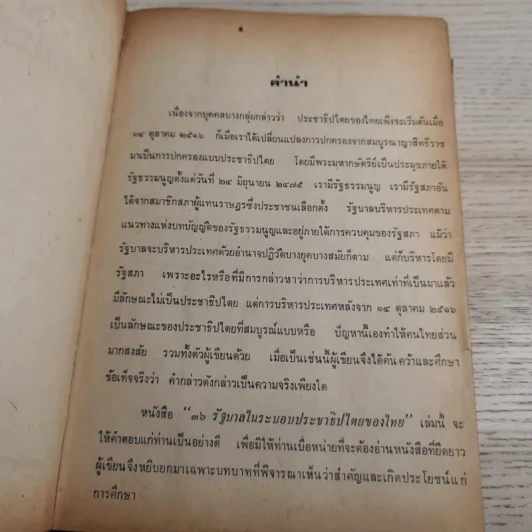 คำนำ
เนื่องจากบุคคลบางกลุ่มกล่าวว่า ประชาธิปไตยของไทยเพิ่งจะเริ่มต้นเมื่อ
๑๔ ตุลาคม ๒๕๑๖ ก็เมื่อเราได้เปลี่ยนแปลงการปกครองจากสมบูรณาญาสิทธิราช
มาเป็นการปกครองแบบประชาธิปไตย โดยมีพระมหากษัตริย์เป็นประมุขภายใต้
รัฐธรรมนูญตั้งแต่วันที่ ๒๔ มิถุนายน ๒๔๗๕ เรามีรัฐธรรมนูญ เรามีรัฐสภาอัน
ได้จากสมาชิกสภาผู้แทนราษฎรซึ่งประชาชนเลือกตั้ง รัฐบาลบริหารประเทศตาม
แนวทางแห่งบทบัญญัติของรัฐธรรมนูญและอยู่ภายใต้การควบคุมของรัฐสภา แม้ว่า
รัฐบาลจะบริหารประเทศด้วยอำนาจปฏิวัติบางยุคบางสมัยก็ตาม แต่ก็บริหารโดยมี
รัฐสภา เพราะอะไรหรือที่มีการกล่าวหาว่าการบริหารประเทศเท่าที่เป็นมาแล้ว
มีลักษณะไม่เป็นประชาธิปไตย แต่การบริหารประเทศหลังจาก ๑๔ ตุลาคม ๒๕๑๖
เป็นลักษณะของประชาธิปไตยที่สมบูรณ์แบบหรือ ปัญหานี้เองทำให้คนไทยส่วน
มากสงสัย รวมทั้งตัวผู้เขียนด้วย เมื่อเป็นเช่นนี้ผู้เขียนจึงได้ค้นคว้าและศึกษา
ข้อเท็จจริงว่า คำกล่าวดังกล่าวเป็นความจริงเพียงใด
หนังสือ "๓๖ รัฐบาลในระบอบประชาธิปไตยของไทย" เล่มนี้ จะ
ให้คำตอบแก่ท่านเป็นอย่างดี เพื่อมิให้ท่านเบื่อหน่ายที่จะต้องอ่านหนังสือที่ยืดยาว
ผู้เขียนจึงหยิบยกมาเฉพาะบทบาทที่พิจารณาเห็นว่าสำคัญและเกิดประโยชน์แก่
การศึกษา